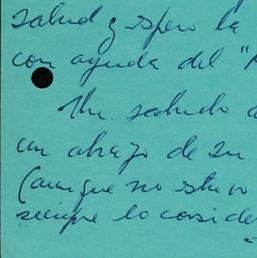 salud y espero la
con ayuda del "
Un saludo a
un abrazo de su
(aunque no estuvo
siempre lo conside